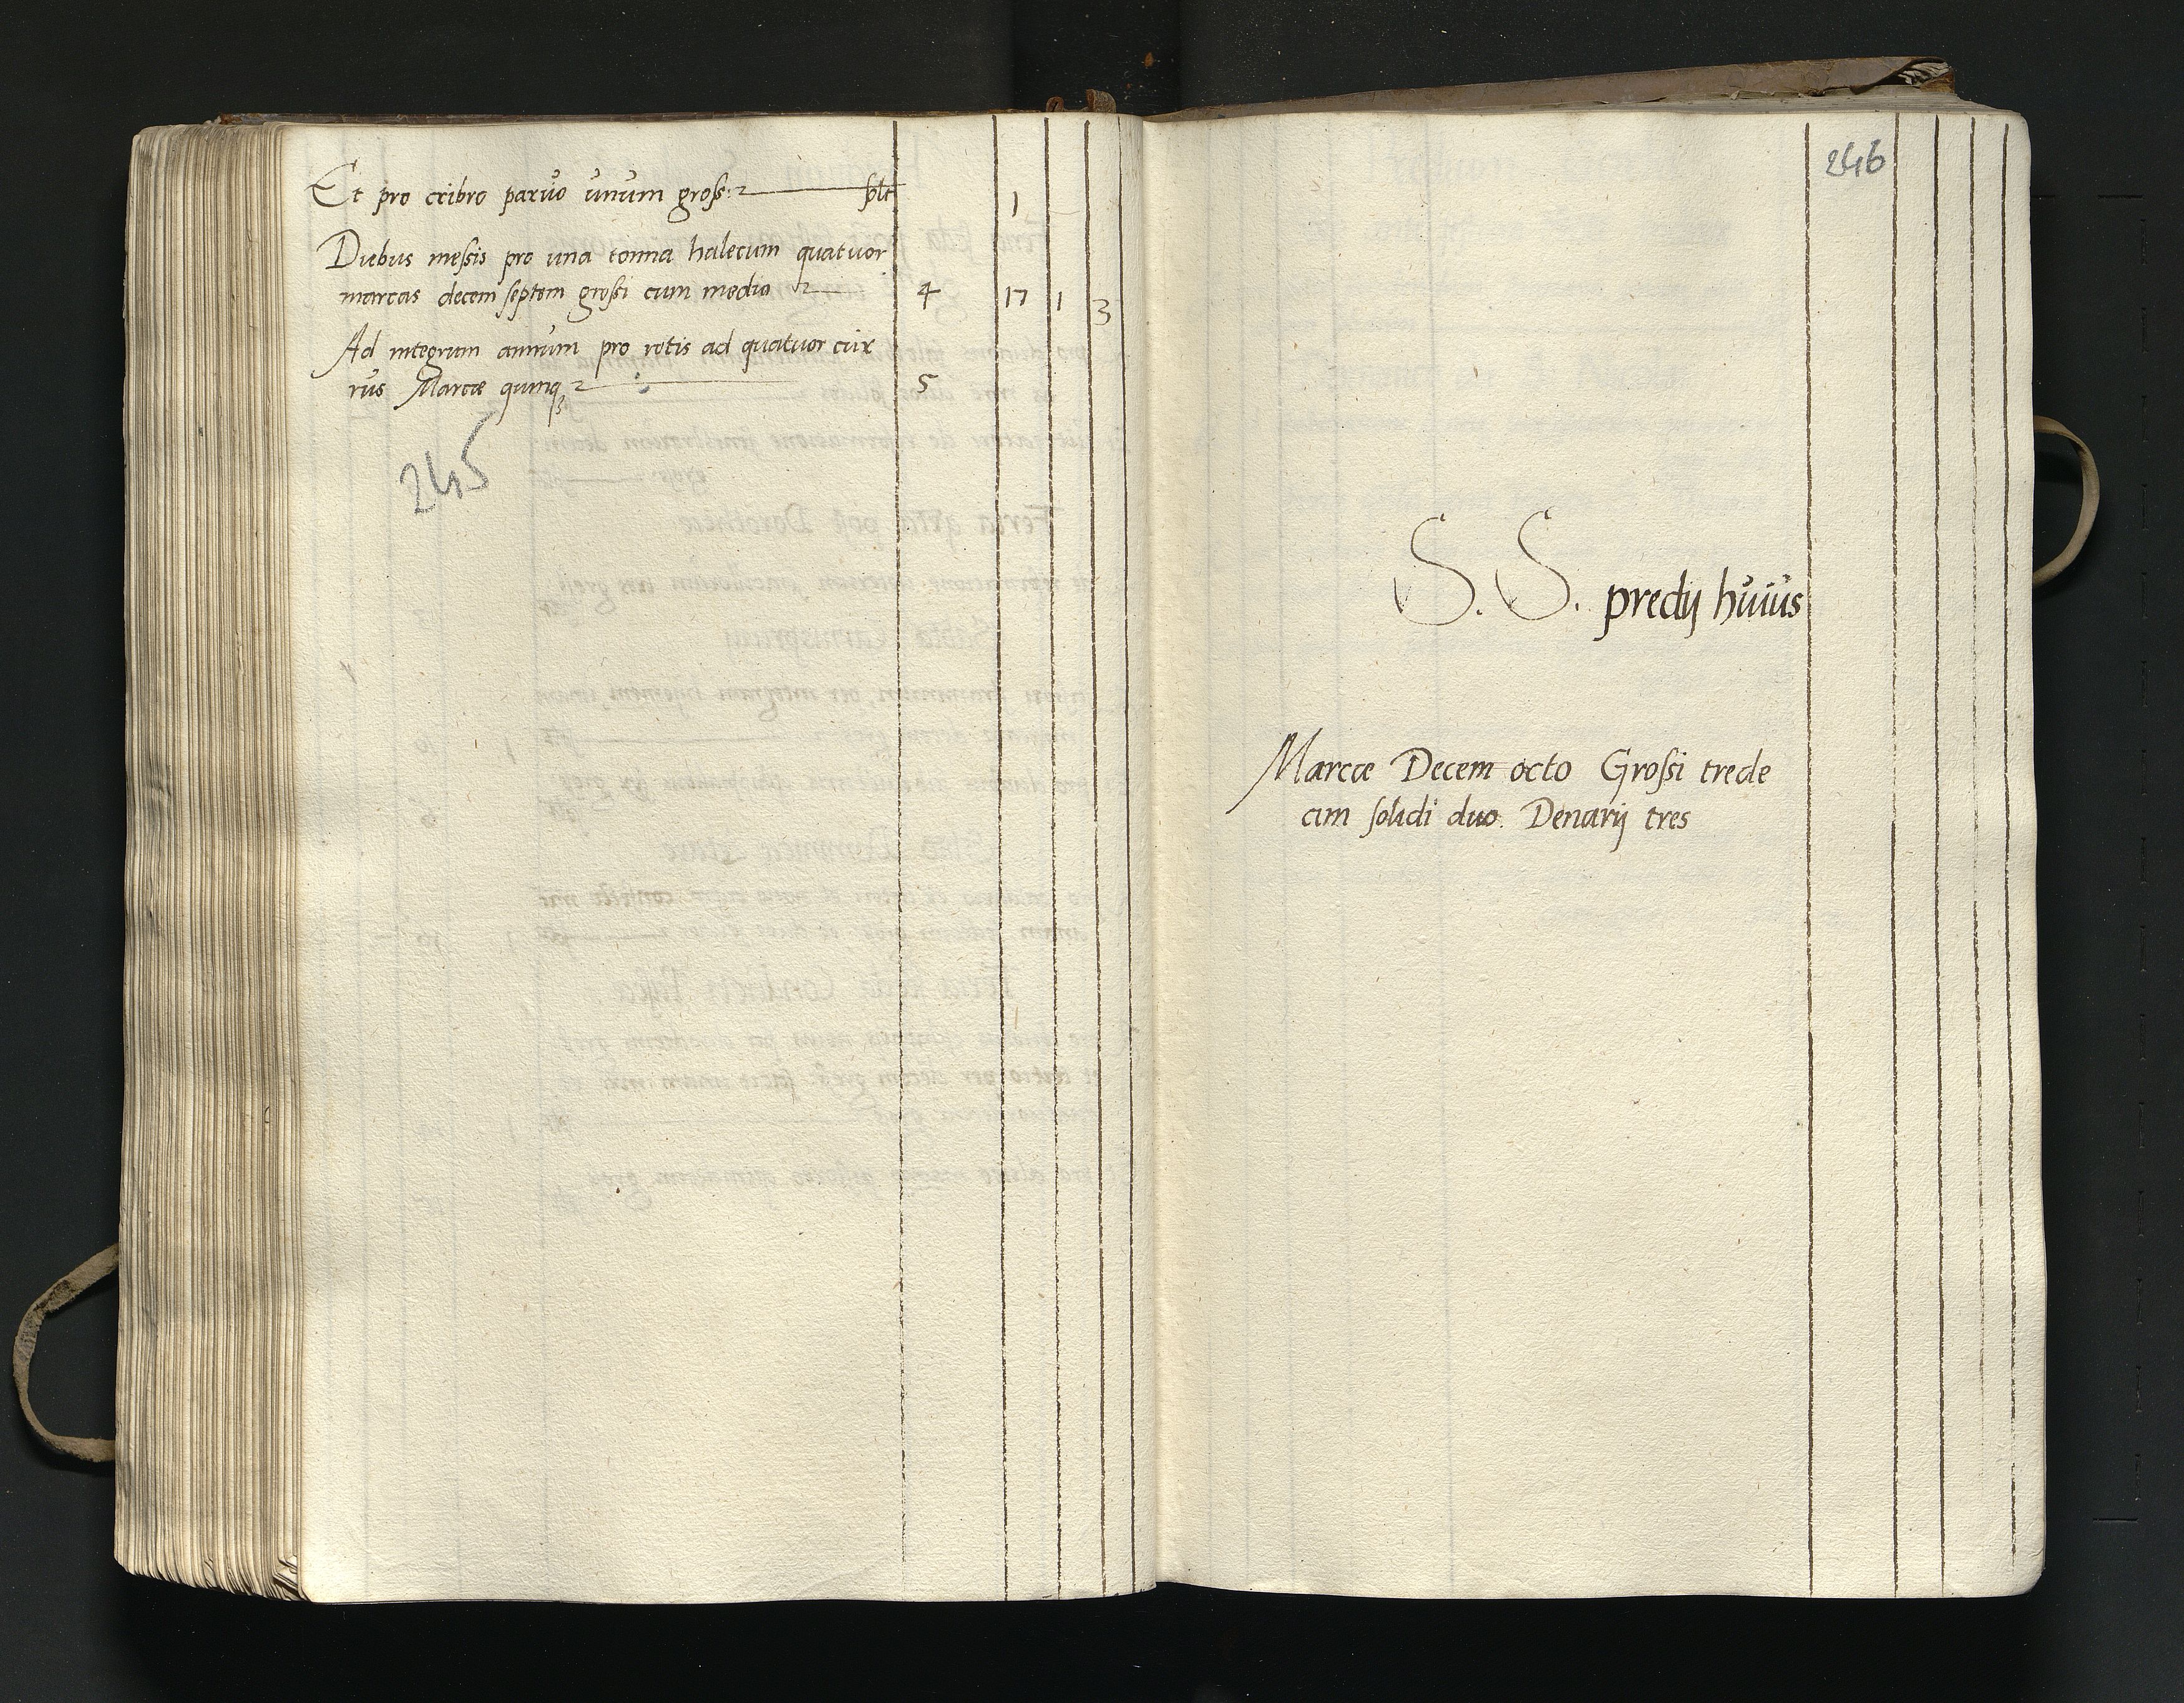 Et pro cribro parvo unum gross: solt 1
Diebus messis pro una tonna halecum quatvor
marcas decem septem grossi cum medio 4 17 1 3
Ad integrum annum pro rotis ad quatvor cur
rus Marcæ quinq 5
245
246
S. S. predij huius
Marcæ Decem octo Grossi trede
cim solidi duo. Denarij tres